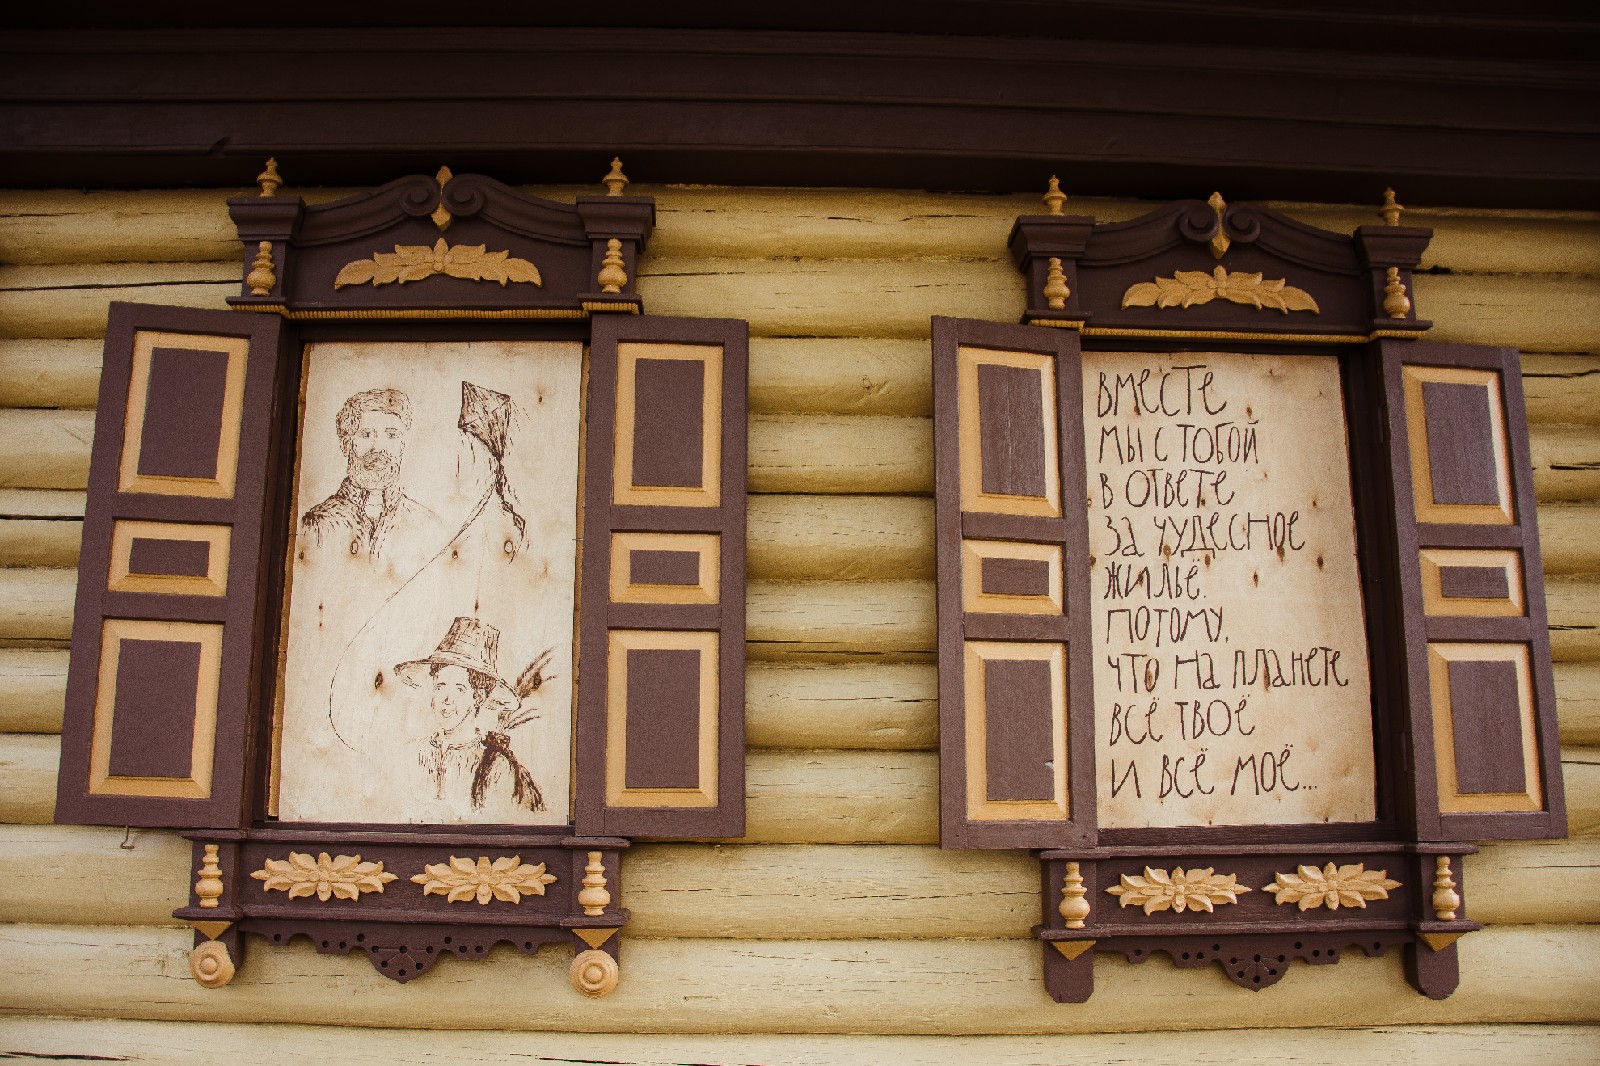 вместе
мы с тобой
в ответе
за чудесное
жильё.
потому,
что на планете
всё твоё
и всё моё...